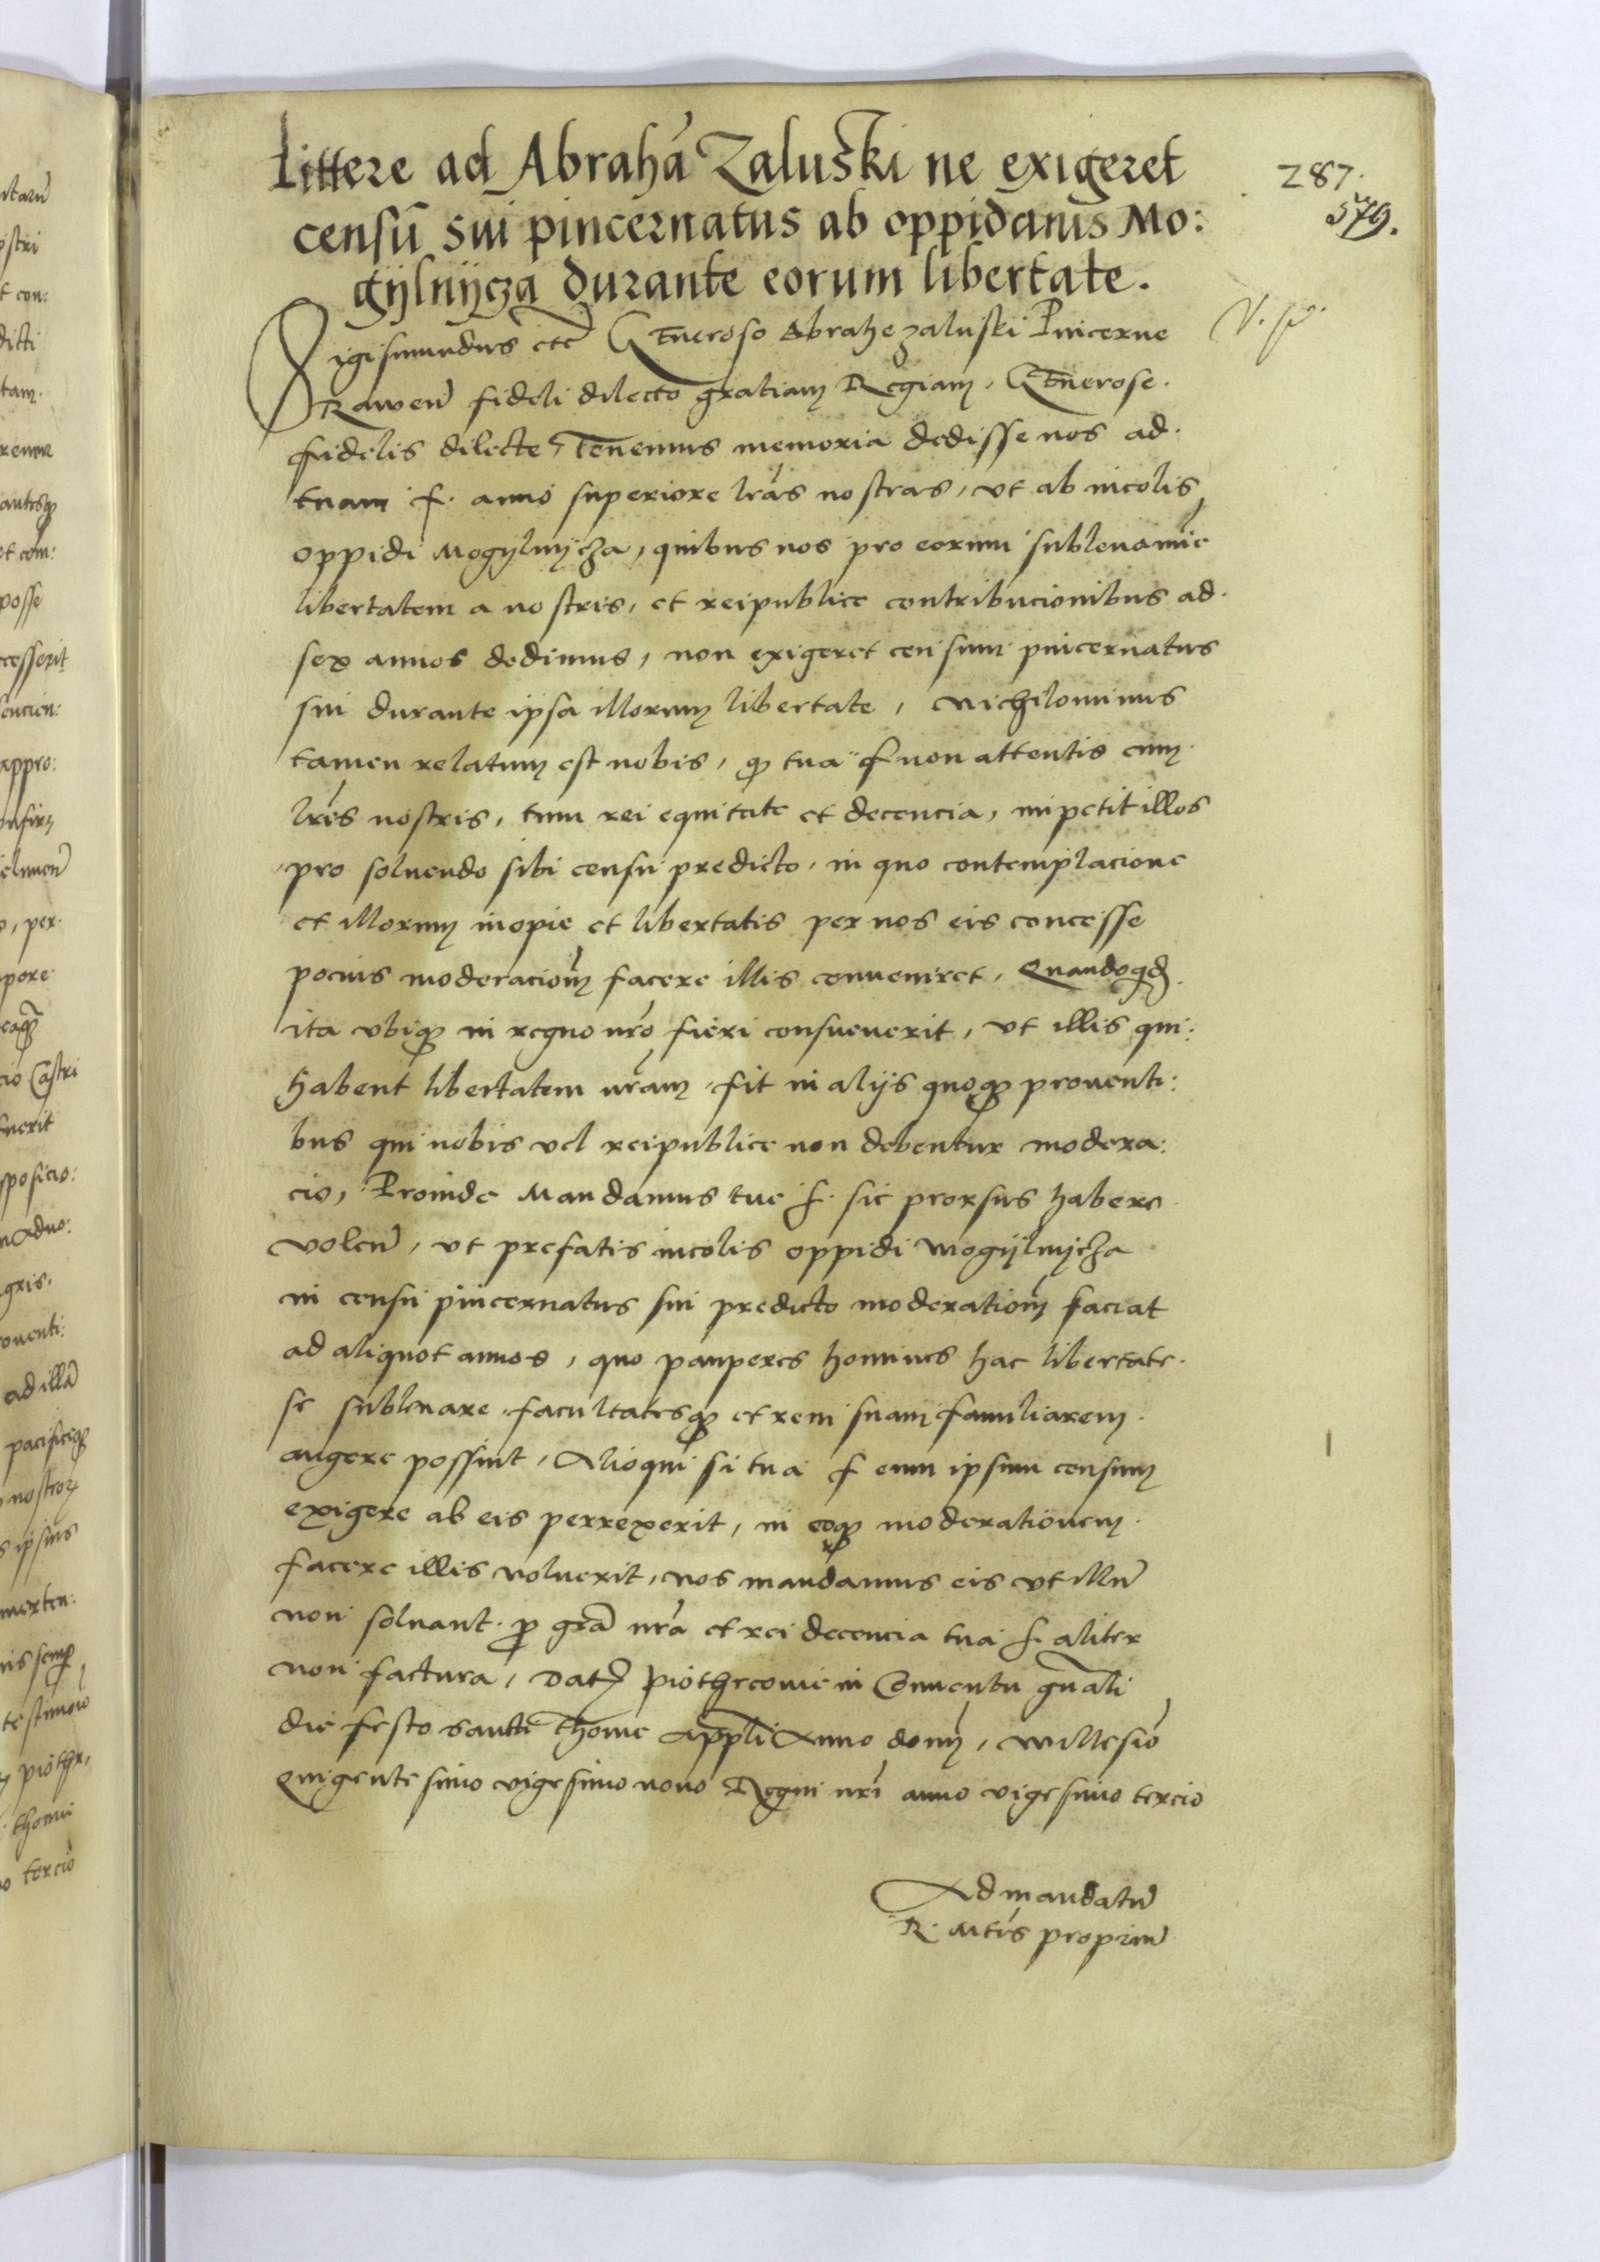 Littere ad Abrahā Zaluski ne exigeret
censū sui pincernatus ab oppidanis Mo:
gijlnijcza durante eorum libertate.
287.
579.
Sigismundus etc̄ Generoso Abrahe Zaluski Pincerne
Rawen̄ fideli dilecto gratiam Regiam, Generose
fidelis dilecte, Tenemus memoria dedisse nos ad
tuam f. anno superiore lrās nostras, ut ab incolis
oppidi Mogylnijcza, quibus nos pro eorum sublevamīe
libertatem a nostris, et reipublice contribucionibus ad
sex annos dedimus, non exigeret censum pincernatus
sui durante ipsa illorum libertate, nichilominus
tamen relatum est nobis, q tua f non attentis cum
lrīs nostris, tum rei equitate et decencia, impetit illos
pro solvendo sibi censu predicto, in quo contemplacione
et illorum inopie et libertatis per nos eis concesse
pocius moderacioēm facere illis conveniret, Quandoqd
ita ubiq in regno nro fieri consueverit, ut illis qui
habent libertatem nram, fit in alijs quoq proventi:
bus qui nobis vel reipublice non debentur modera:
cio, Proinde Mandamus tue f. sic prorsus habere
volen̄, ut prefatis incolis oppidi Mogijlnijcza
in censu pincernatus sui predicto moderatioēm faciat
ad aliquot annos, quo pauperes homines hac libertate
se sublevare facultatesq et rem suam familiarem
augere possint, Alioqui si tua f eum ipsum censum
exigere ab eis perrexerit, in eoq moderationem
facere illis noluerit, nos mandamus eis ut illū
non solvant. p grā nrā et rei decencia tua f. aliter
non factura, Dat Piothrcovie in Conventu gnāli
die festo sancti Thome Appli Anno domī, Millesiō
Quigentesimo vigesimo nono Regni nri anno vigesimo tercio
Ad mandatū
R. Mtīs propriū